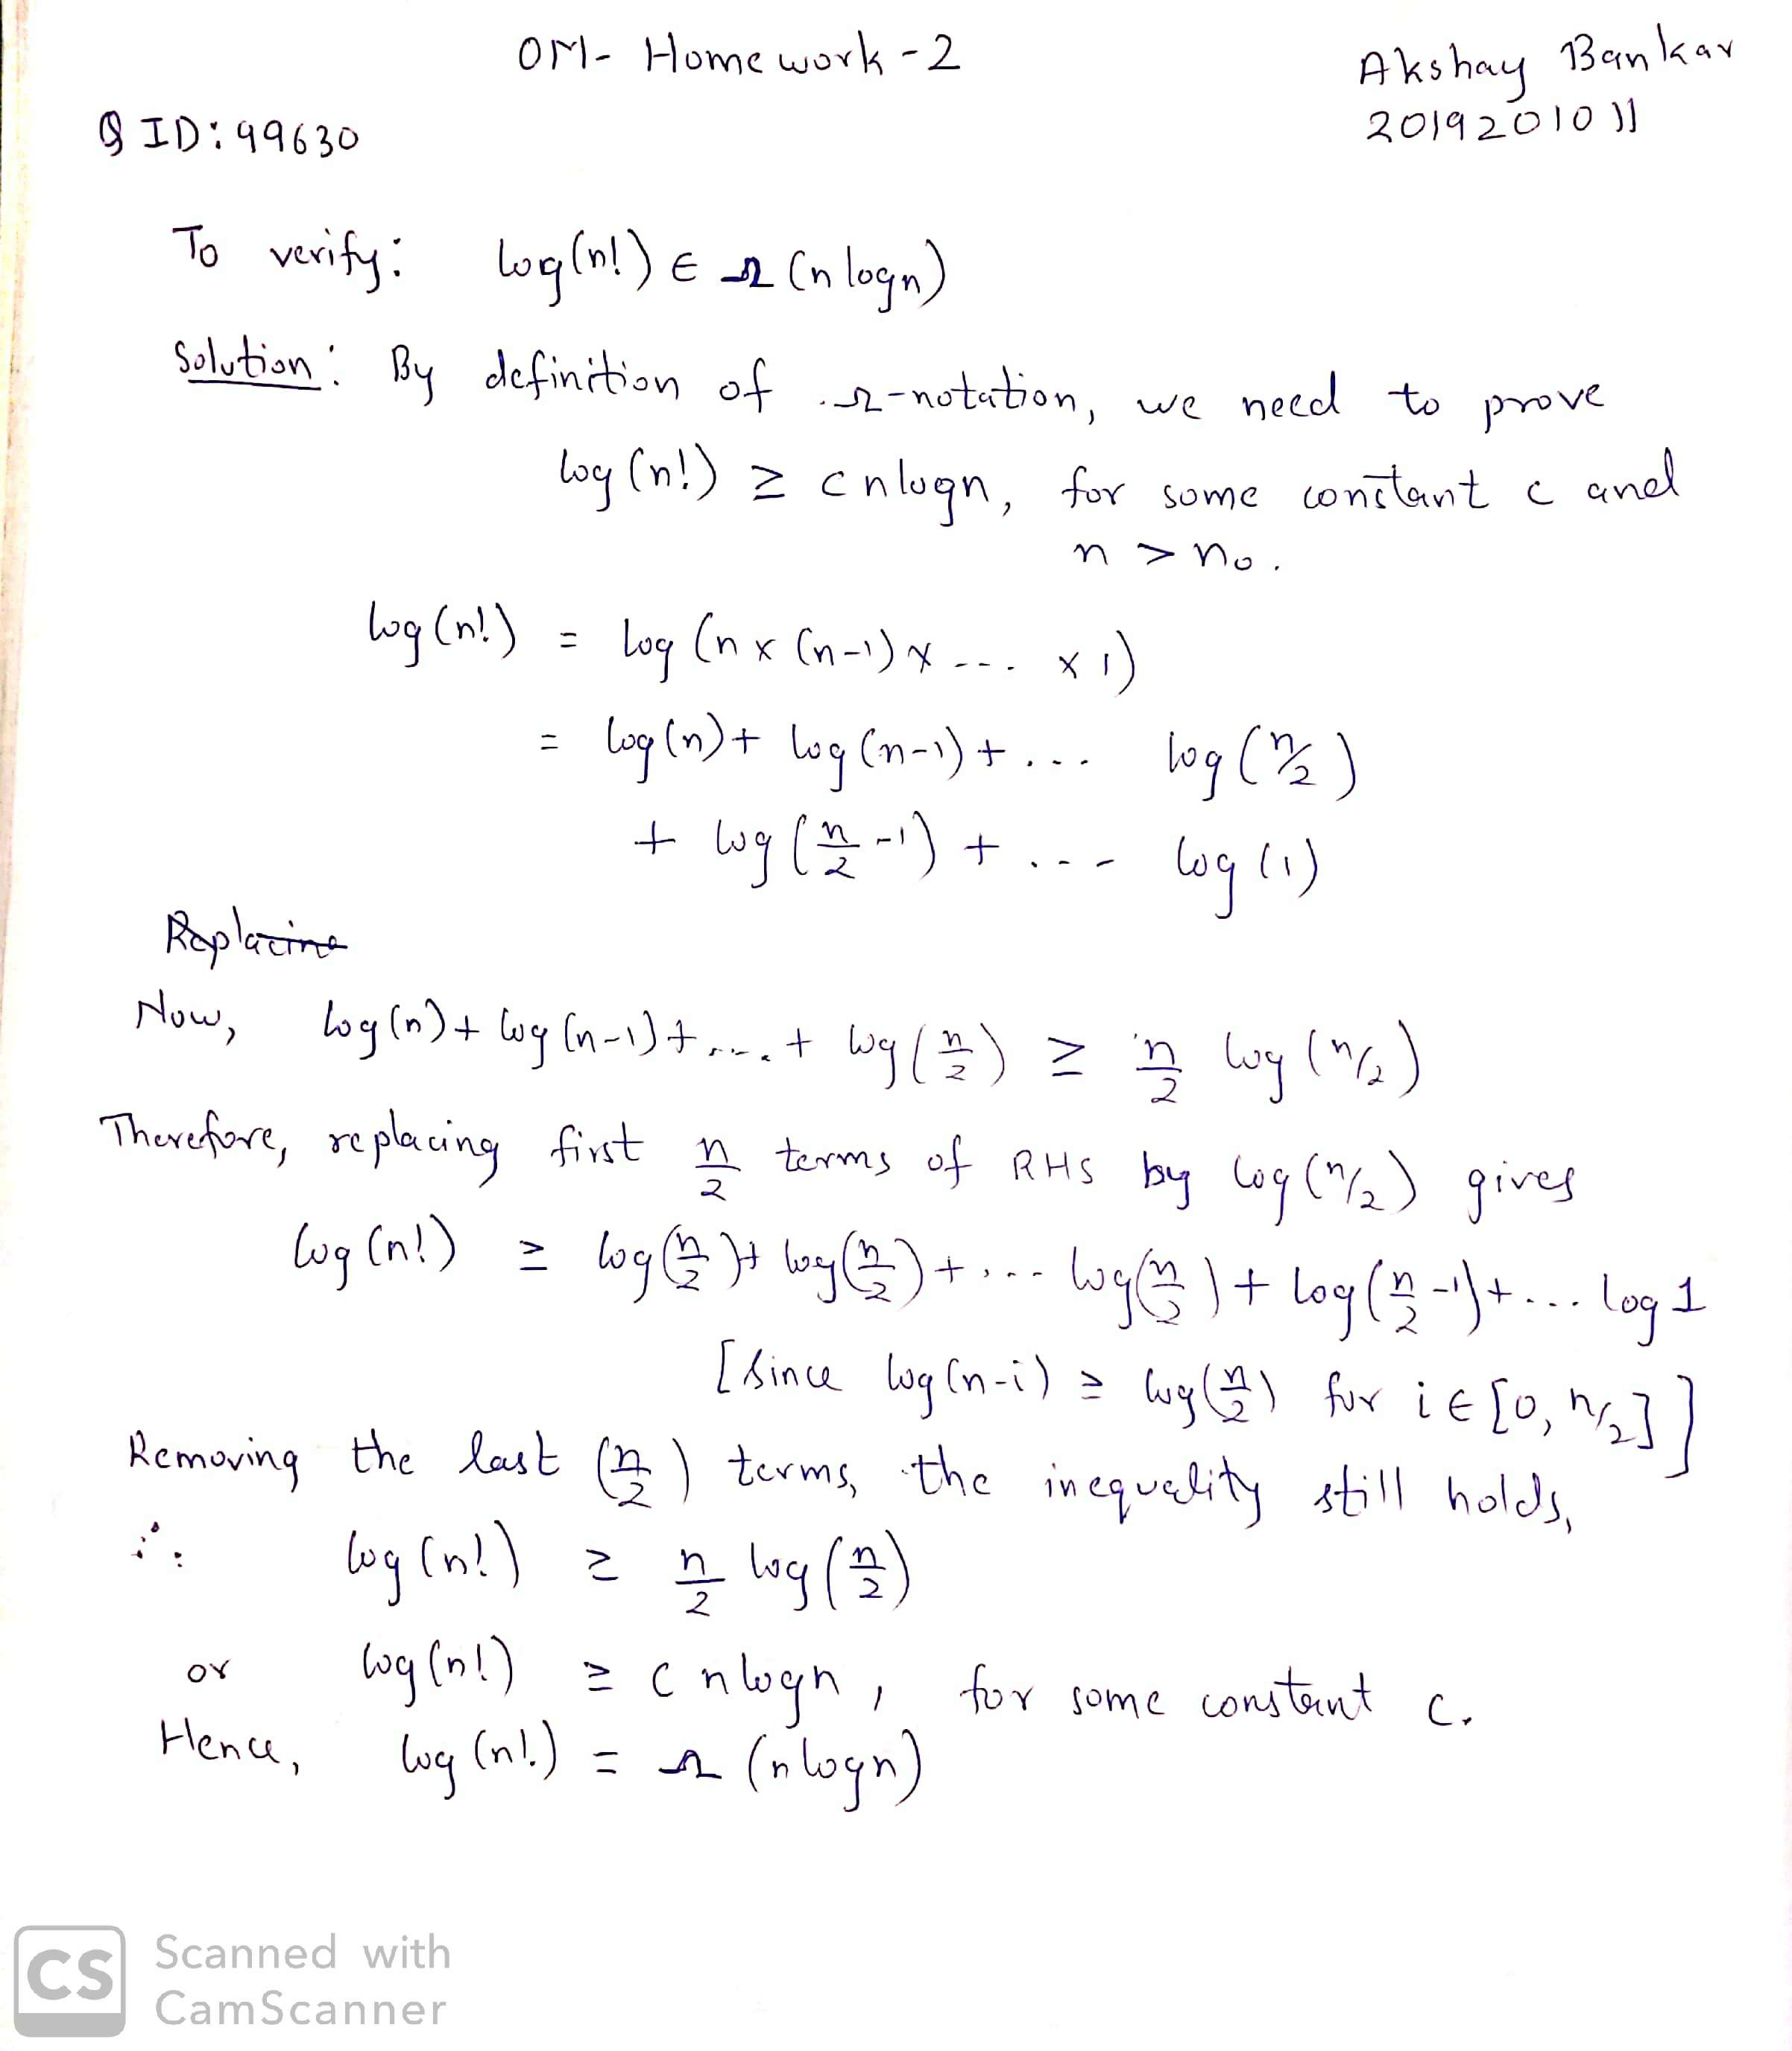 OM- Homework-2
Akshay Bankar
2019201011
Q ID: 99630
To verify: log(n!) ∈ Ω (n logn)
Solution: By definition of Ω-notation, we need to prove
log (n!) ≥ c nlogn, for some constant c and
n > n₀.
log (n!) = log (n x (n-1) x --- x 1)
= log(n) + log (n-1) + ... log (n/2)
+ log (n/2 -1) + --- log (1)
Replacing
Now, log(n) + log (n-1) + .... + log (n/2) ≥ n/2 log (n/2)
Therefore, replacing first n/2 terms of RHS by log (n/2) gives
log (n!) ≥ log(n/2) + log(n/2) + ... log(n/2) + log(n/2 -1) + ... log 1
[Since log(n-i) ≥ log(n/2) for i ∈ [0, n/2]]
Removing the last (n/2) terms, the inequality still holds,
∴ log (n!) ≥ n/2 log (n/2)
or log (n!) ≥ c nlogn, for some constant c.
Hence, log (n!) = Ω (nlogn)
CS Scanned with
CamScanner